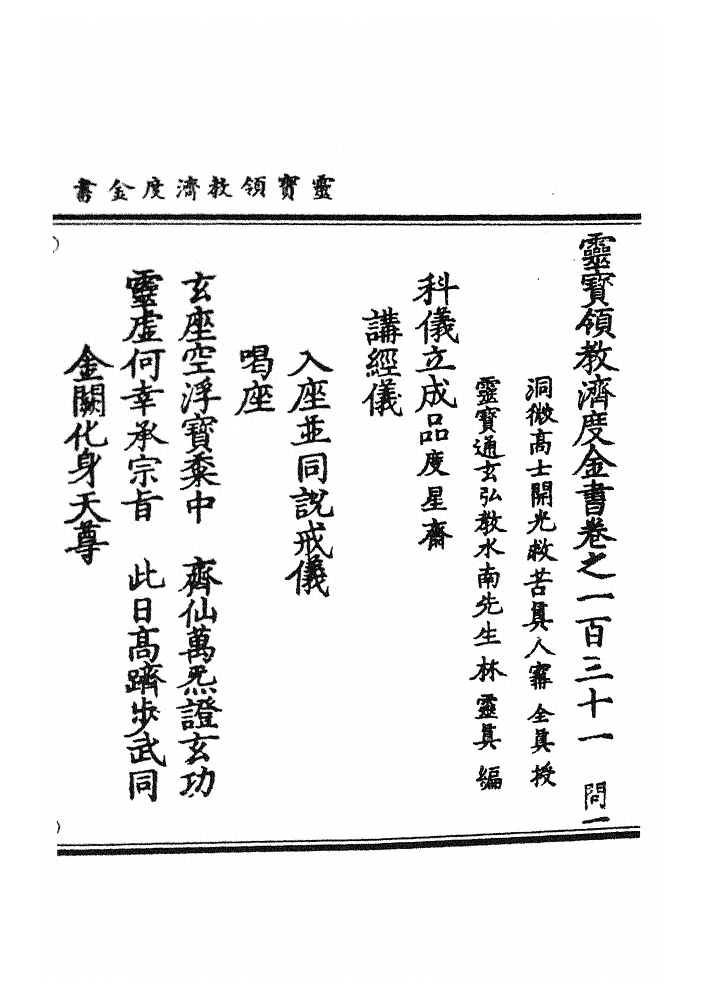 靈寶領教濟度金書
靈寶領教濟度金書卷之一百三十一 問一
洞微高士開光救苦眞人寗全眞授
靈寶通玄弘教水南先生林靈眞編
科儀立成品度星齋
講經儀
入座並同說戒儀
喝座
玄座空浮寶黍中 齊仙萬炁證玄功
靈虛何幸承宗旨 此日高躋步武同
金闕化身天尊